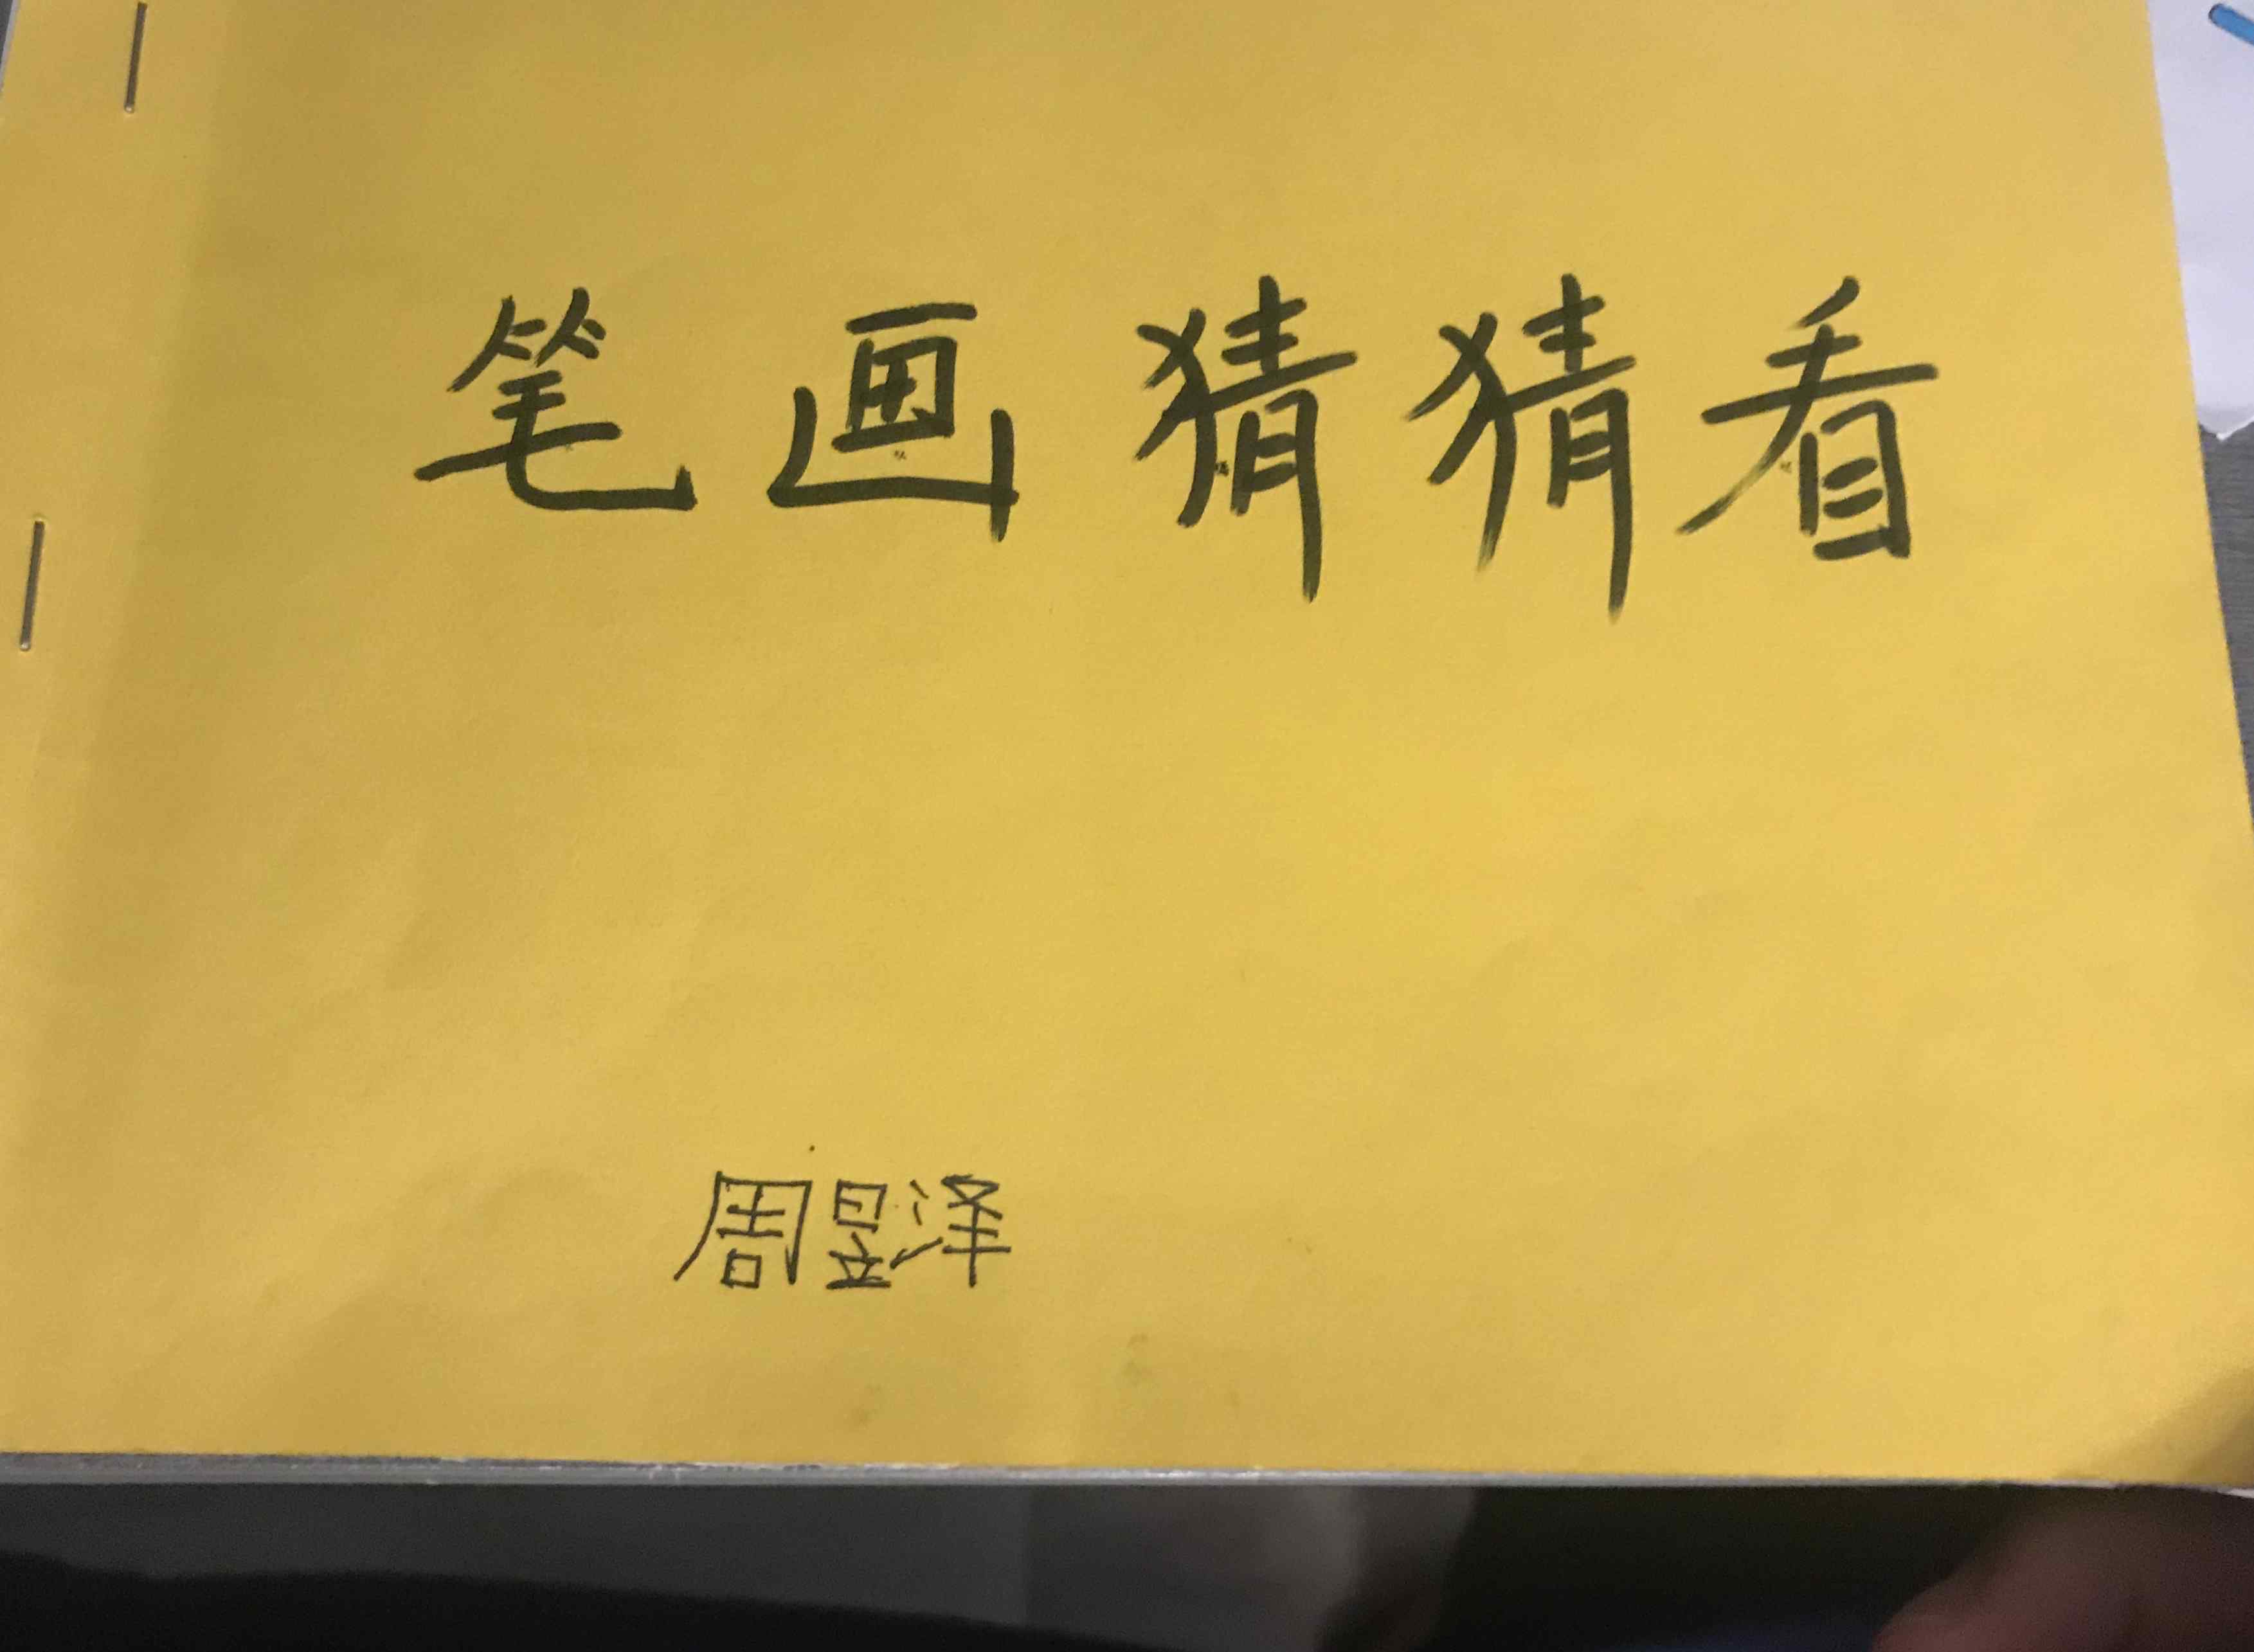 笔画猜猜看
周昱泽